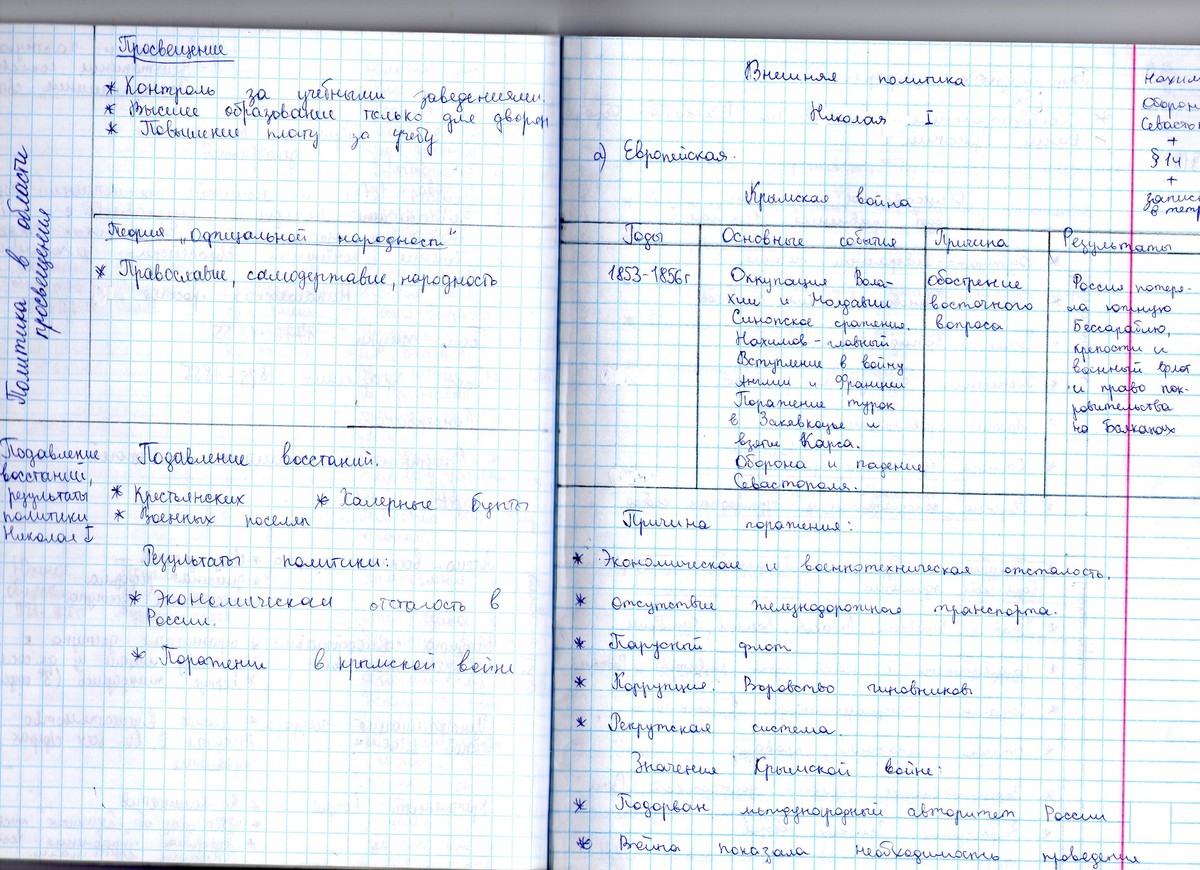 Просвещение
* Контроль за учебными заведениями.
* Высшее образование только для дворян
* Повышение плату за учебу
Политика в области
просвещения
Теория "Официальной народности"
* Православие, самодержавие, народность
Подавление
восстаний,
результаты
политики
Николая I
Подавление восстаний.
* Крестьянских * Халерные бунты
* Военных поселян
Результаты политики:
* Экономическая отсталость в
России.
* Поражение в крымской войне
Внешняя политика
Николая I
а) Европейская.
Крымская война
Нахим
Оборон
Севасто
+
§ 14
+
запис
в тетр
Годы Основные события Причина Результаты
1853-1856г
Оккупация Вала-
хии и Молдавии
Синопское сражение.
Нахимов - главный
Вступление в войну
Англии и Франции
Поражение турок
в Закавказье и
взятие Карса.
Оборона и падение
Севастополя.
обострение
восточного
вопроса
Россия потеря-
ла южную
Бессарабию,
крепости и
военный флот
и право пок-
ровительства
на Балканах
Причина поражения:
* Экономическая и военнотехническая отсталость.
* отсутствие железнодорожного транспорта.
* Парусный флот
* Коррупция. Воровство чиновников
* Рекрутская система.
Значения Крымской войне:
* Подорван международный авторитет России
* Война показала необходимость проведение